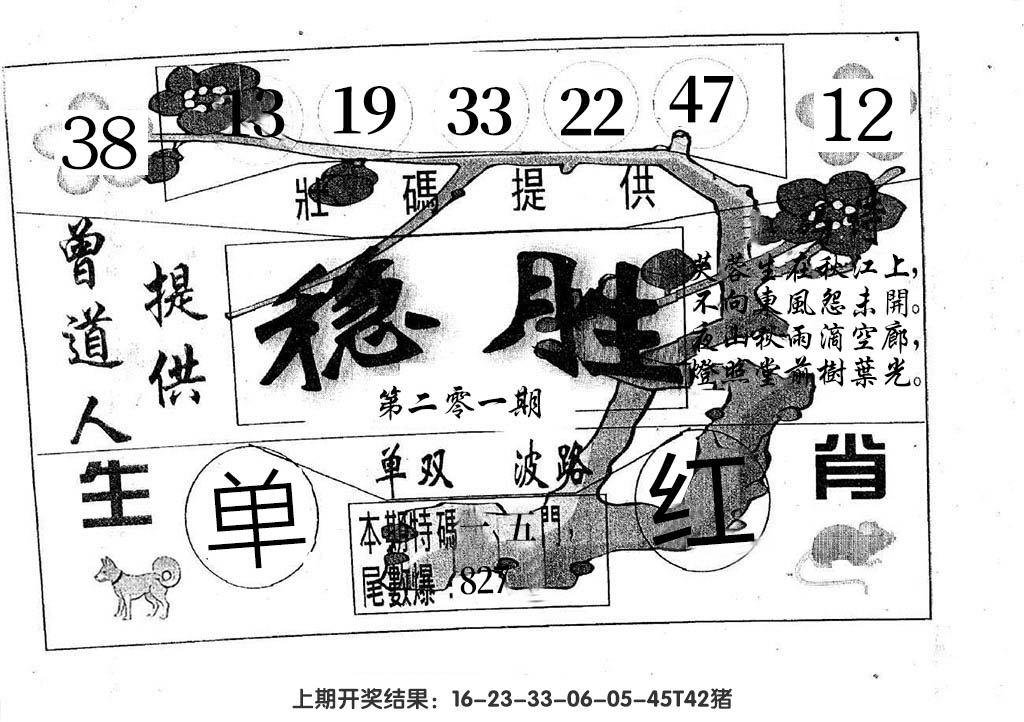 38 13 19 33 22 47 12
壯碼提供
曾道人
提供
稳胜
第二零一期
特
芙蓉生在秋江上,
不向東風怨未開。
夜山秋雨滴空廊,
燈照堂前樹葉光。
生肖
单双 波路
单 红
本期特碼一、五門,
尾數爆:827
上期开奖结果：16-23-33-06-05-45T42猪